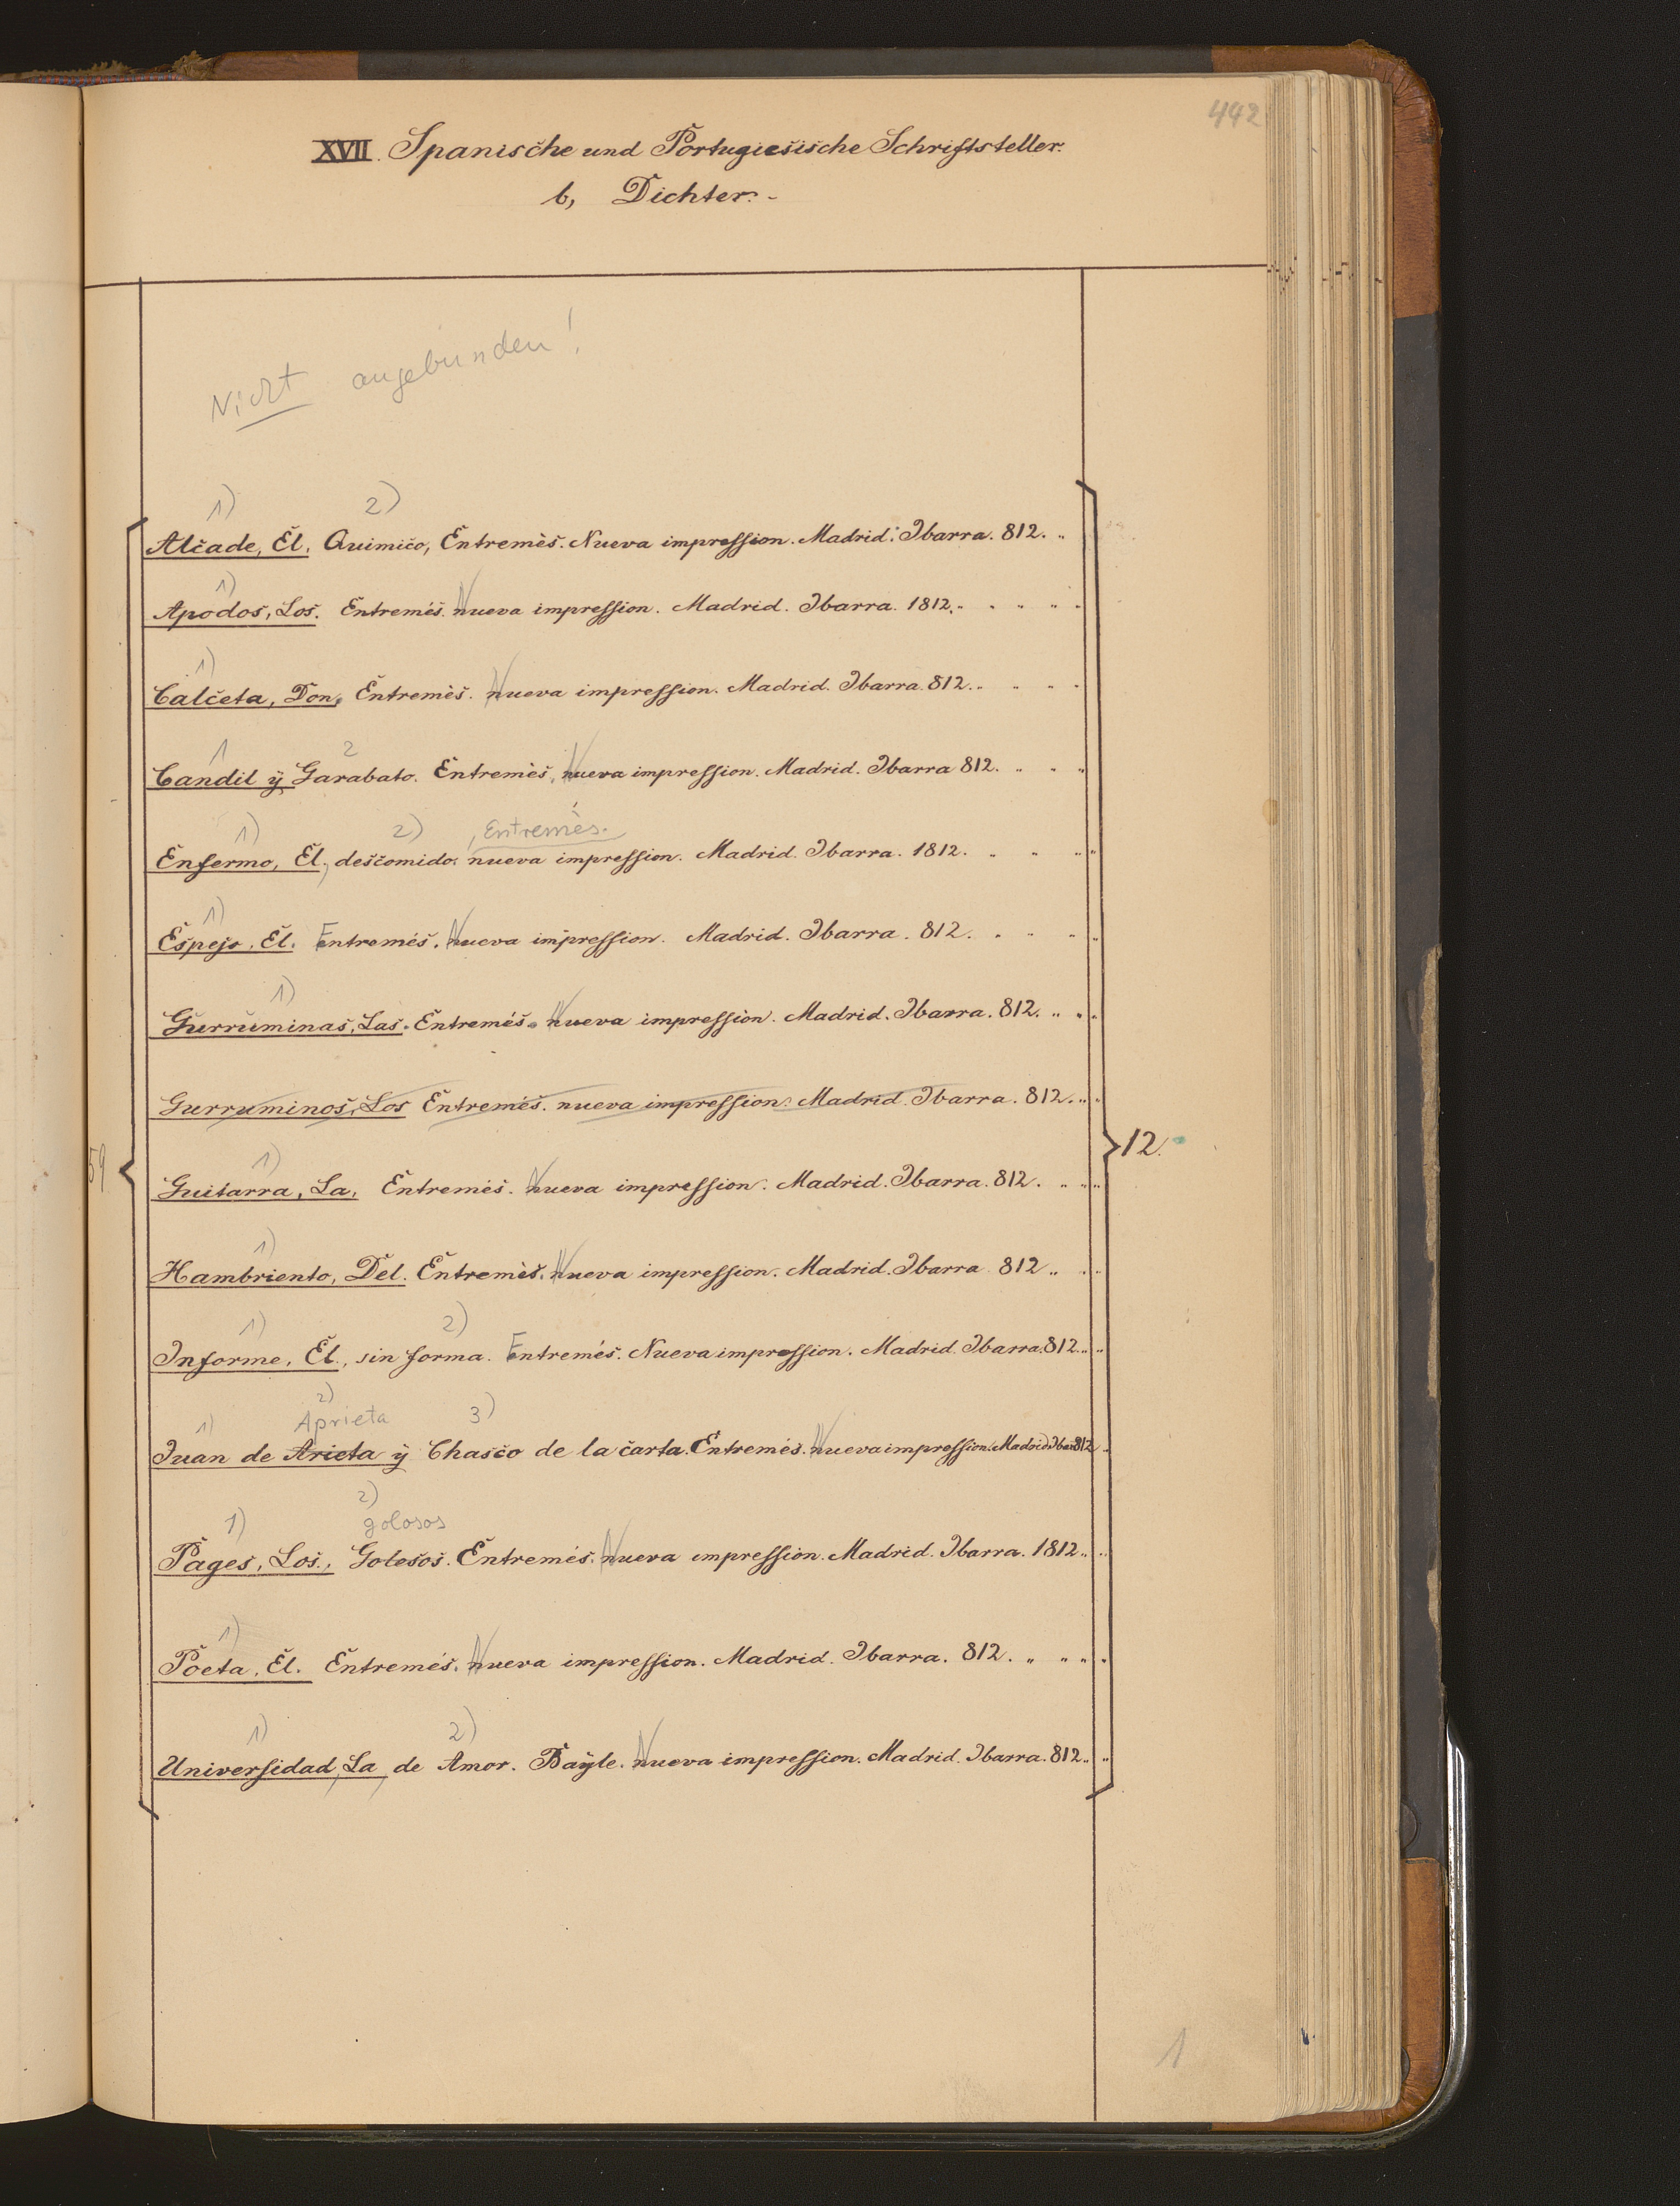 442
XVII. Spanische und Portugiesische Schriftsteller.
b, Dichter.-
Nicht angebunden!
1) 2)
Alcade, El. Quimico, Entremès. Nueva impression. Madrid. Ibarra. 812. „
1)
Apodos, Los. Entremés. Nueva impression. Madrid. Ibarra. 1812. „ „ „ „ „
1)
Calceta, Don, Entremès. Nueva impression. Madrid. Ibarra. 812. „ „ „ „
1 2
Candil ÿ Garabato. Entremès, Nueva impression. Madrid. Ibarra 812. „ „ „
1) 2) , Entremès.
Enfermo, El, descomido. nueva impression. Madrid. Ibarra. 1812. „ „ „ „
1)
Espejo, El. Entremés. Nueva impression. Madrid. Ibarra. 812. „ „ „ „
1)
Gurruminas, Las. Entremés. Nueva impression. Madrid. Ibarra. 812. „ „ „
Gurruminos, Los Entremés. nueva impression. Madrid. Ibarra. 812. „ „
59 12.
1)
Guitarra, La, Entremés. Nueva impression. Madrid. Ibarra. 812. „ „ „
1)
Hambriento, Del. Entremès. Nueva impression. Madrid. Ibarra 812 „ „ „
1) 2)
Informe, El., sin forma. Entremés. Nueva impression. Madrid. Ibarra. 812. „ „
1) 2) Aprieta 3)
Juan de Arieta ÿ Chasco de la carta. Entremés. Nueva impression. Madrid. Ibar. 812 „
1) 2) golosos
Pages, Los., Golesos. Entremés. Nueva impression. Madrid. Ibarra. 1812. „ „
1)
Poeta, El. Entremés. Nueva impression. Madrid. Ibarra. 812. „ „ „ „
1) 2)
Universidad, La, de Amor. Baÿle. Nueva impression. Madrid. Ibarra. 812. „ „
1